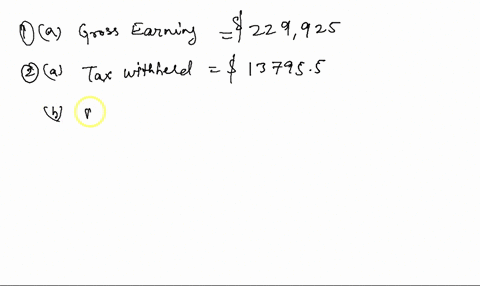 ① (a) Gross Earning = $ 229,925
② (a) Tax withheld = $ 13795.5
(b)